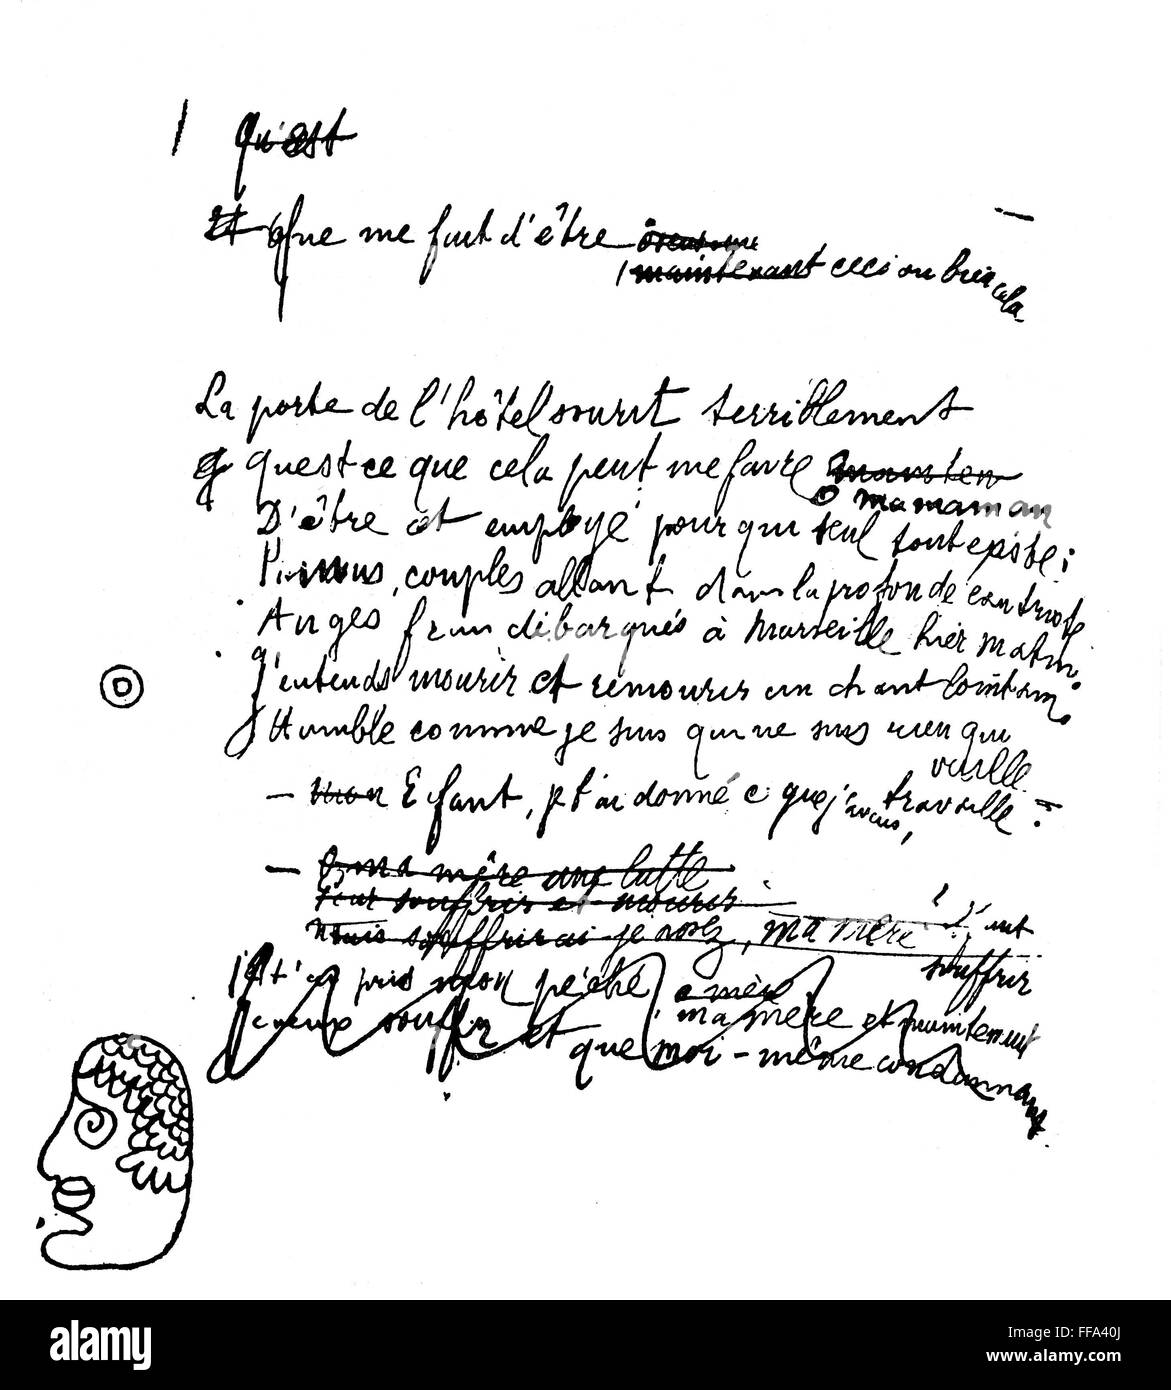 Qu'est
Et Que me fait d'être
maintenant ceci ou bien cela
La porte de l'hôtel sourit terriblement
Qu'est ce que cela peut me faire
ô ma maman
D'être cet employé pour qui seul tout existe
couples allant dans la profonde eau triste
Anges frais débarqués à Marseille hier matin
J'entends mourir et remourir un chant lointain
Humble comme je suis qui ne suis rien qui
vaille
— Enfant, j't'ai donné c'que j'avais, travaille
— ma mère une lutte
Tout souffrir et mourir
souffrirai je assez, ma mère
souffrir
pris mon péché
mère
Je veux souffrir et que ma mère et maintenant
moi-même condamnant
alamy
Image ID: FFA40J
www.alamy.com